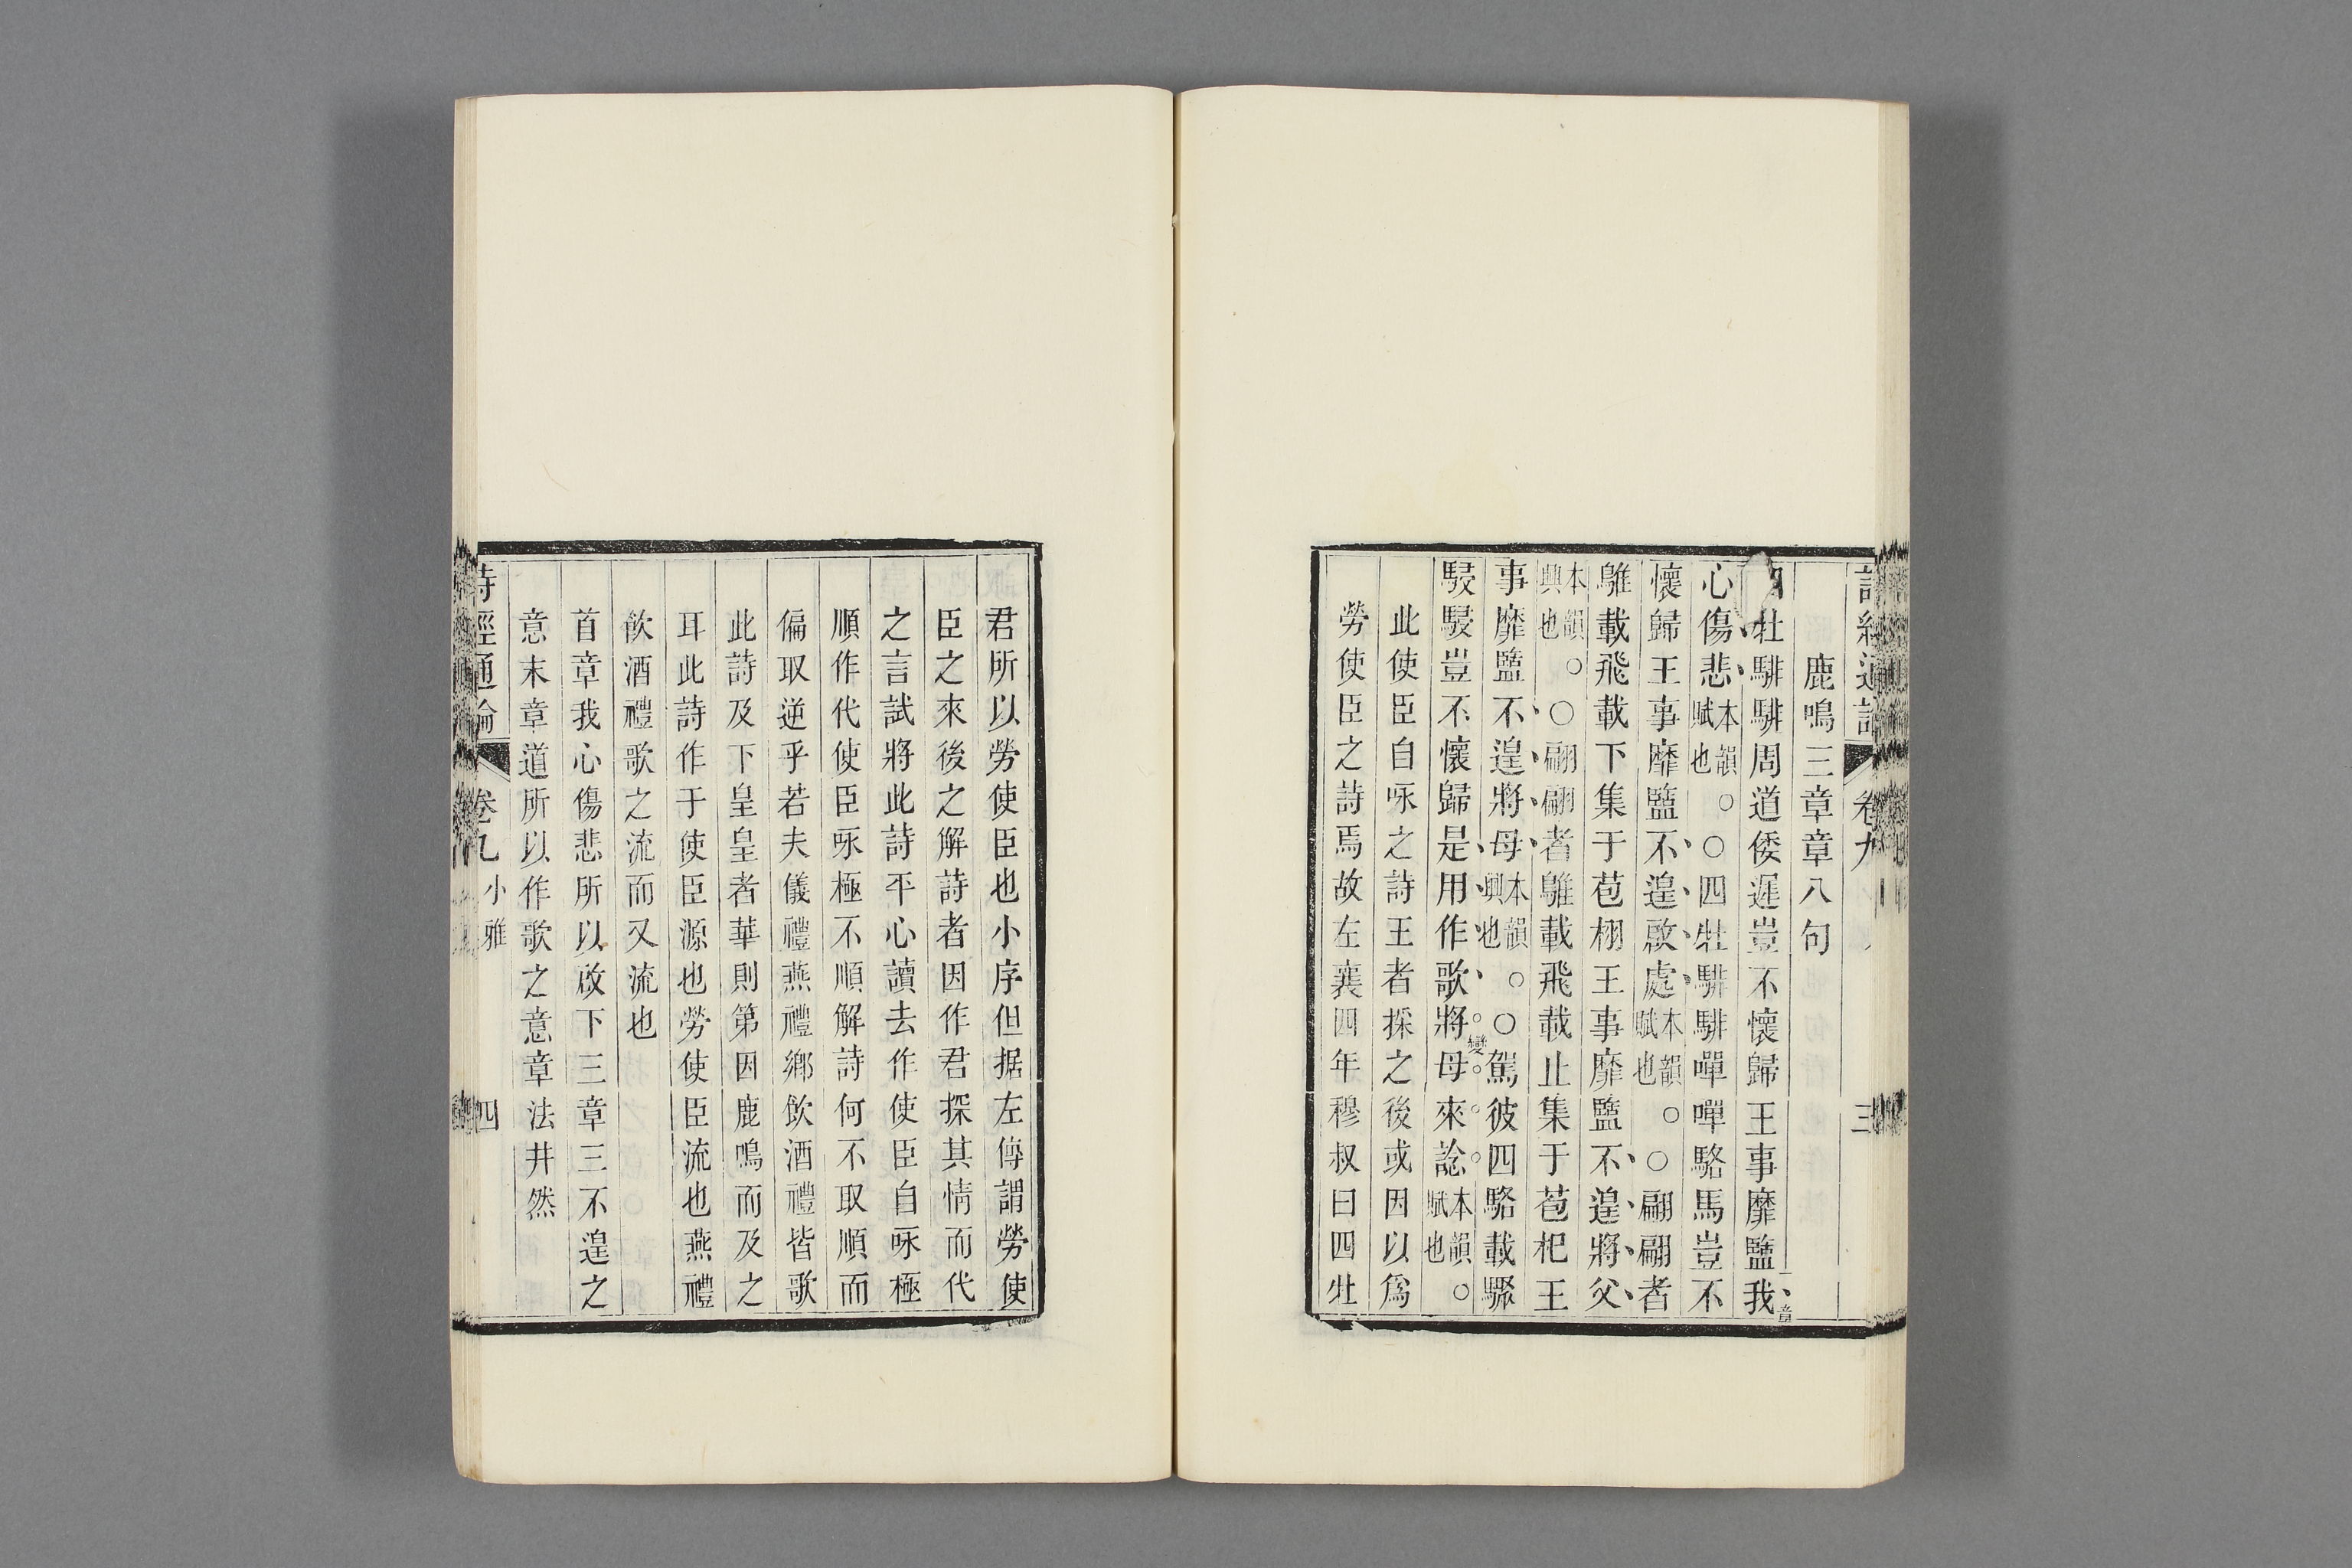 詩經通論 卷九 三
鹿鳴三章章八句
牡騑騑周道倭遲豈不懷歸王事靡盬我
心傷悲本韻賦也。○四牡騑騑嘽嘽駱馬豈不
懷歸王事靡盬不遑啟處本韻賦也。○翩翩者
鵻載飛載下集于苞栩王事靡盬不遑將父
本韻興也。○翩翩者鵻載飛載止集于苞杞王
事靡盬不遑將母本韻興也。○駕彼四駱載驟
駸駸豈不懷歸是用作歌將母來諗本韻賦也。
變
此使臣自咏之詩王者採之後或因以爲
勞使臣之詩焉故左襄四年穆叔曰四牡
君所以勞使臣也小序但据左傳謂勞使
臣之來後之解詩者因作君探其情而代
之言試將此詩平心讀去作使臣自咏極
順作代使臣咏極不順解詩何不取順而
偏取逆乎若夫儀禮燕禮鄉飲酒禮皆歌
此詩及下皇皇者華則第因鹿鳴而及之
耳此詩作于使臣源也勞使臣流也燕禮
飲酒禮歌之流而又流也
首章我心傷悲所以啟下三章三不遑之
意末章道所以作歌之意章法井然
詩經通論 卷九 小雅 四